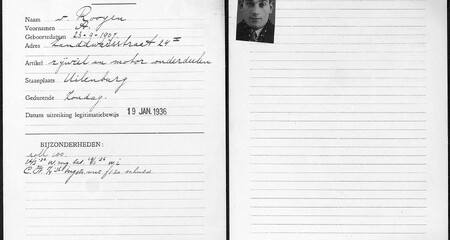 Naam v. Rooyen
Voornamen A.
Geboortedatum 23-9-1907
Adres Zanddwarsstraat 24 II
Artikel rijwiel en motor onderdeelen
Staanplaats Uilenburg
Gedurende Zondag.
Datum uitreiking legitimatiebewijs 19 JAN. 1936
BIJZONDERHEDEN: